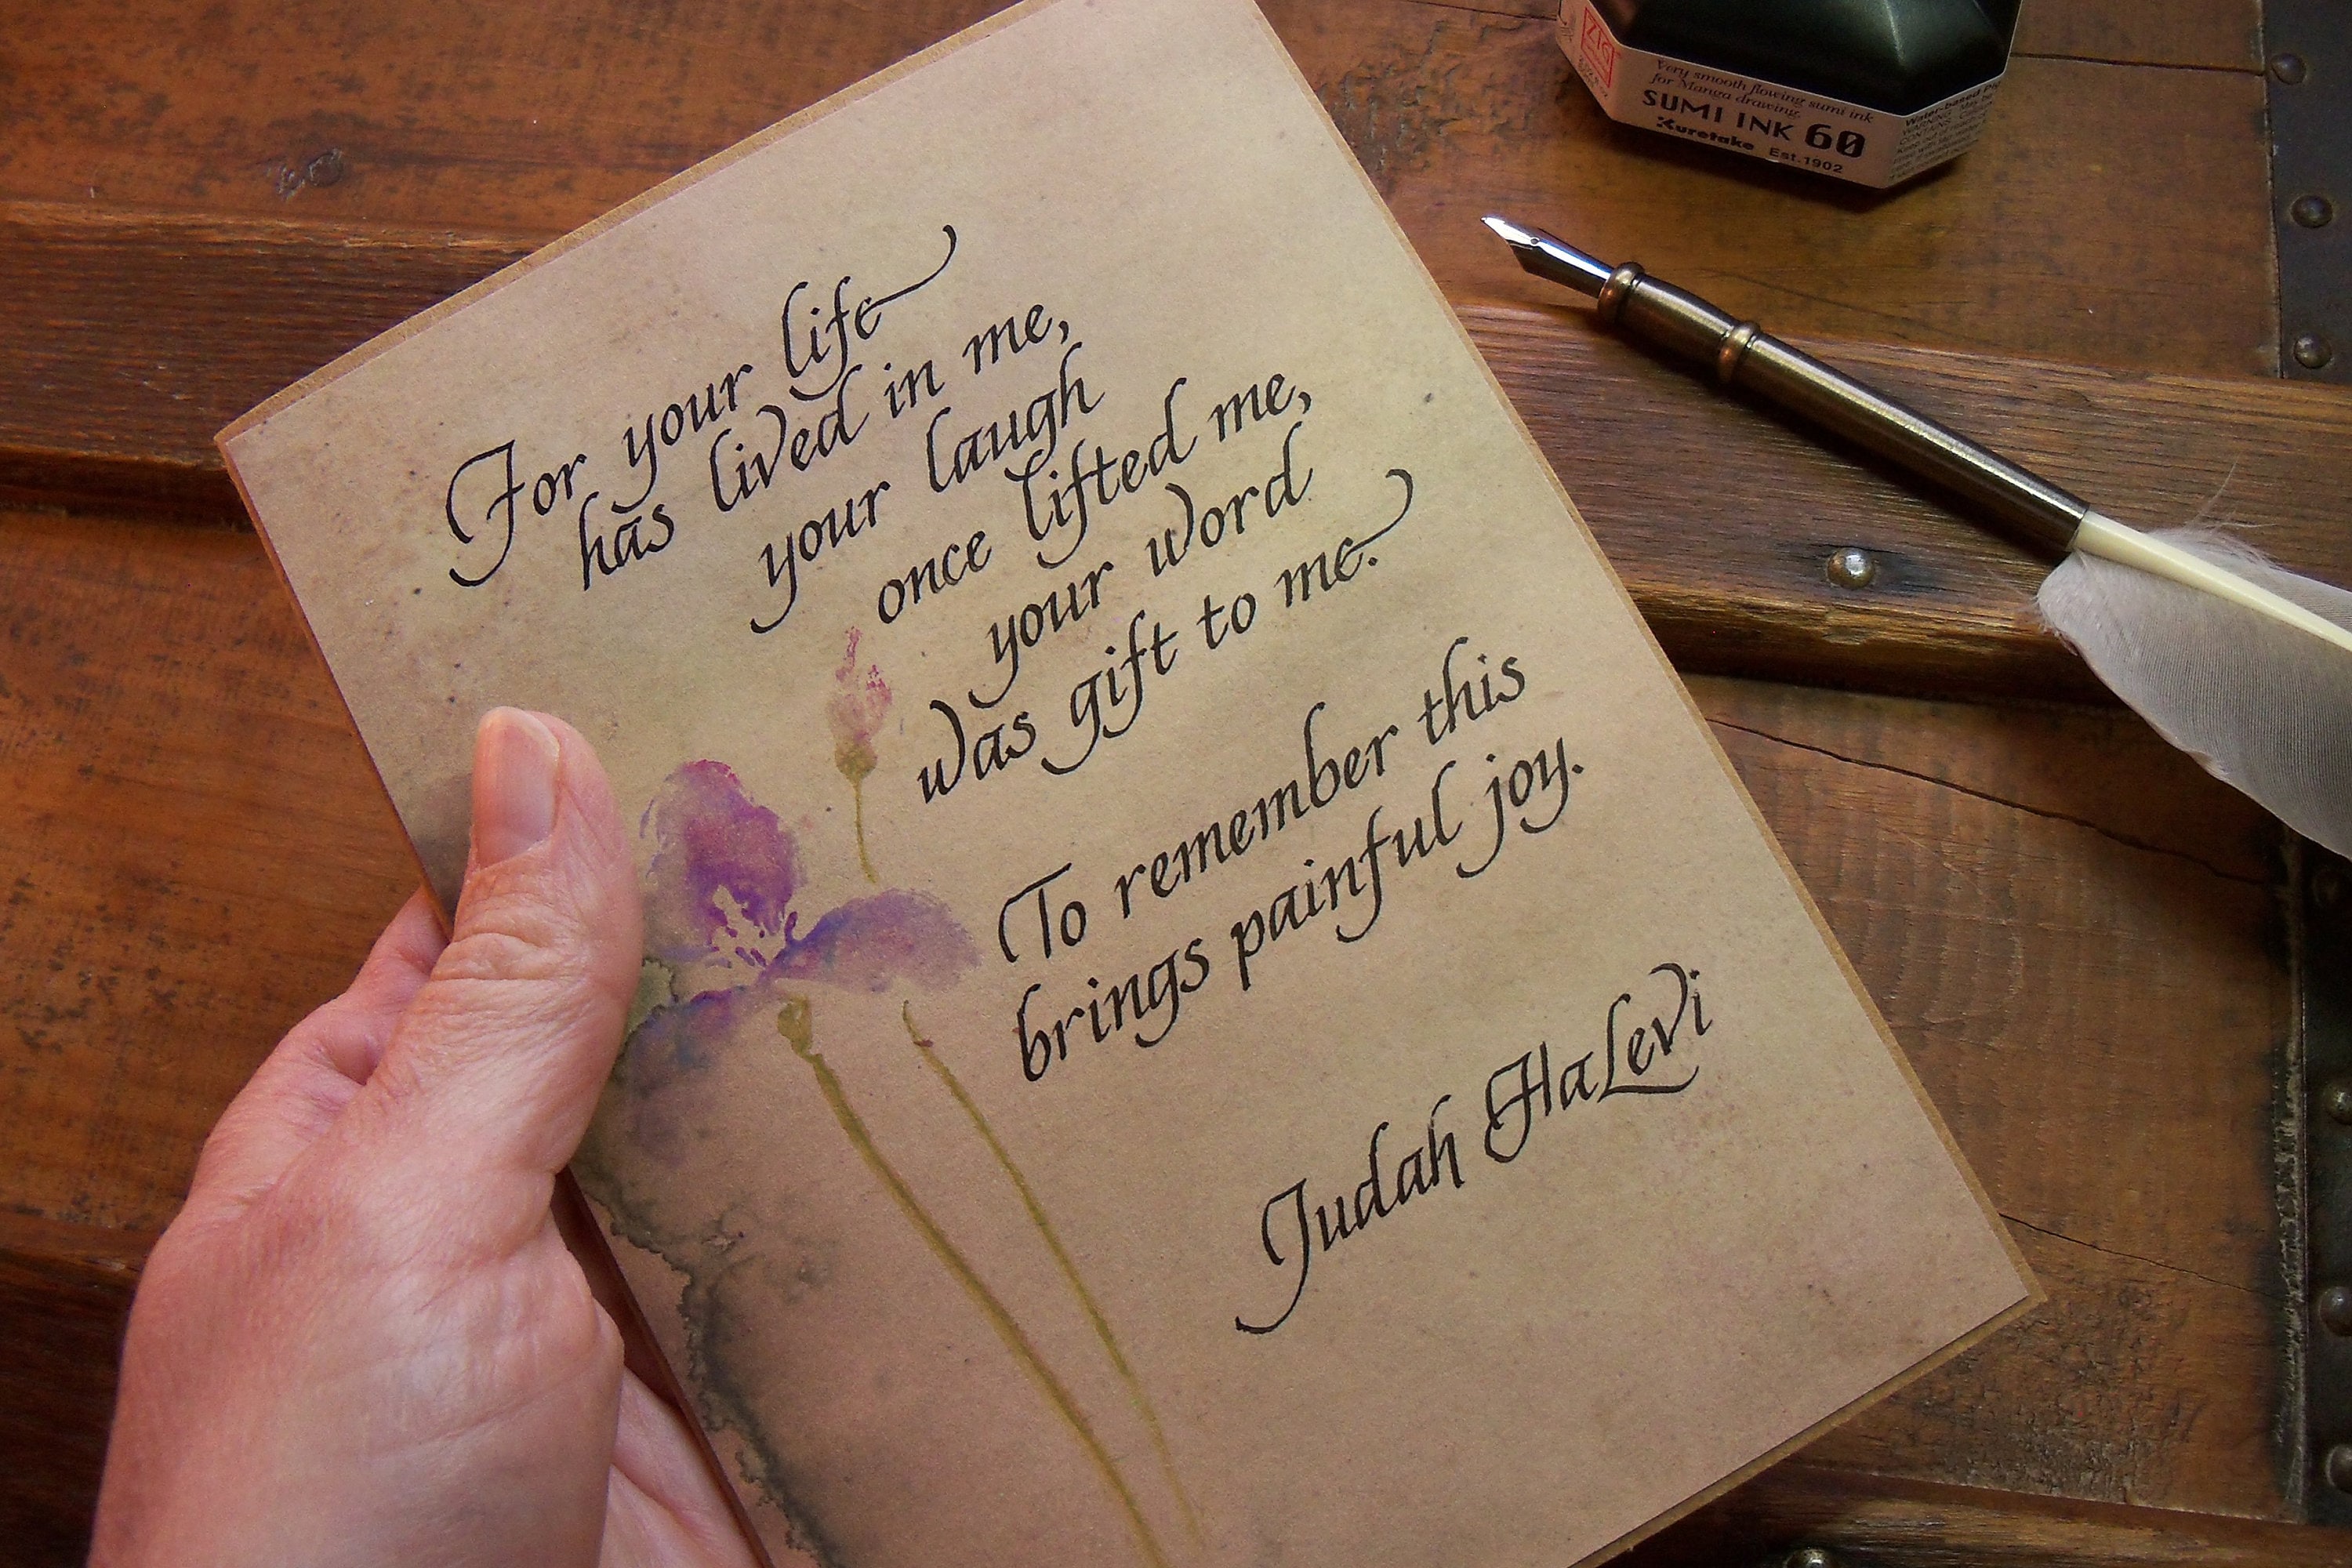 For your life
has lived in me,
your laugh
once lifted me,
your word
was gift to me.
To remember this
brings painful joy.
Judah HaLevi
ZIG
Very smooth flowing sumi ink
for Manga drawing.
SUMI INK 60
Kuretake Est.1902
Water-based
WARNING